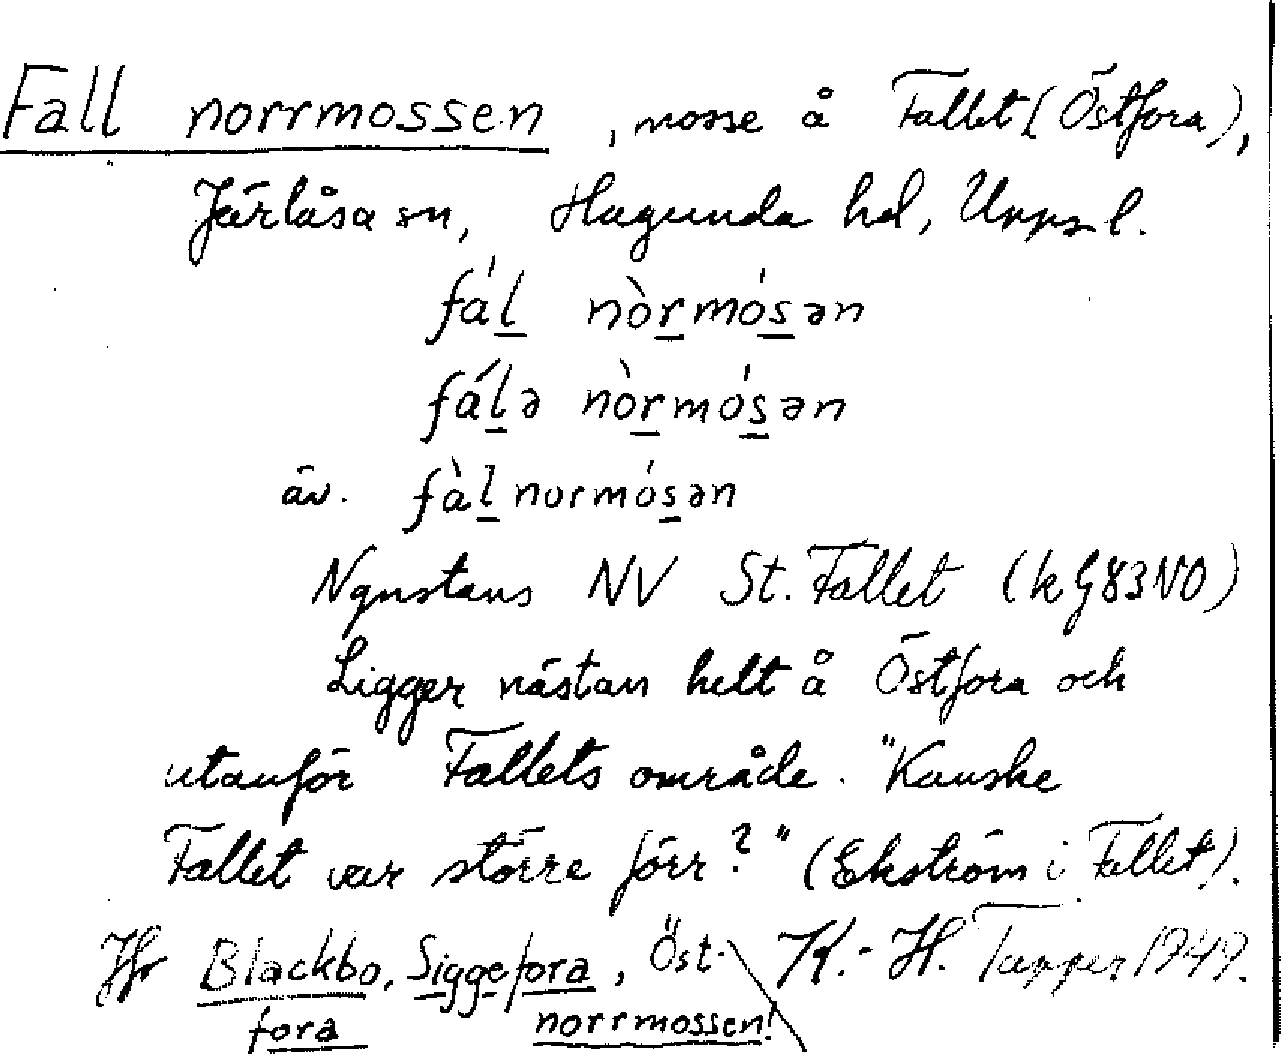 Fall norrmossen, mosse å Fallet (Östfora),
Järlåsa sn, Hagunda hd, Uppsl.
fál nòrmósən
fálə nòrmósən
äv. fàlnormósən
Ngnstans NV St. Fallet (k G83NO)
Ligger nästan helt å Östfora och
utanför Fallets område. "Kanske
Fallet var större förr?" (Ekström i Fallet).
Jfr Blackbo, Siggefora, Öst- K.-H. Tapper 1949.
fora norrmossen!